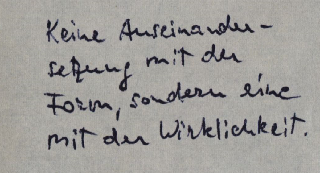 Keine Auseinander-
setzung mit der
Form, sondern eine
mit der Wirklichkeit.